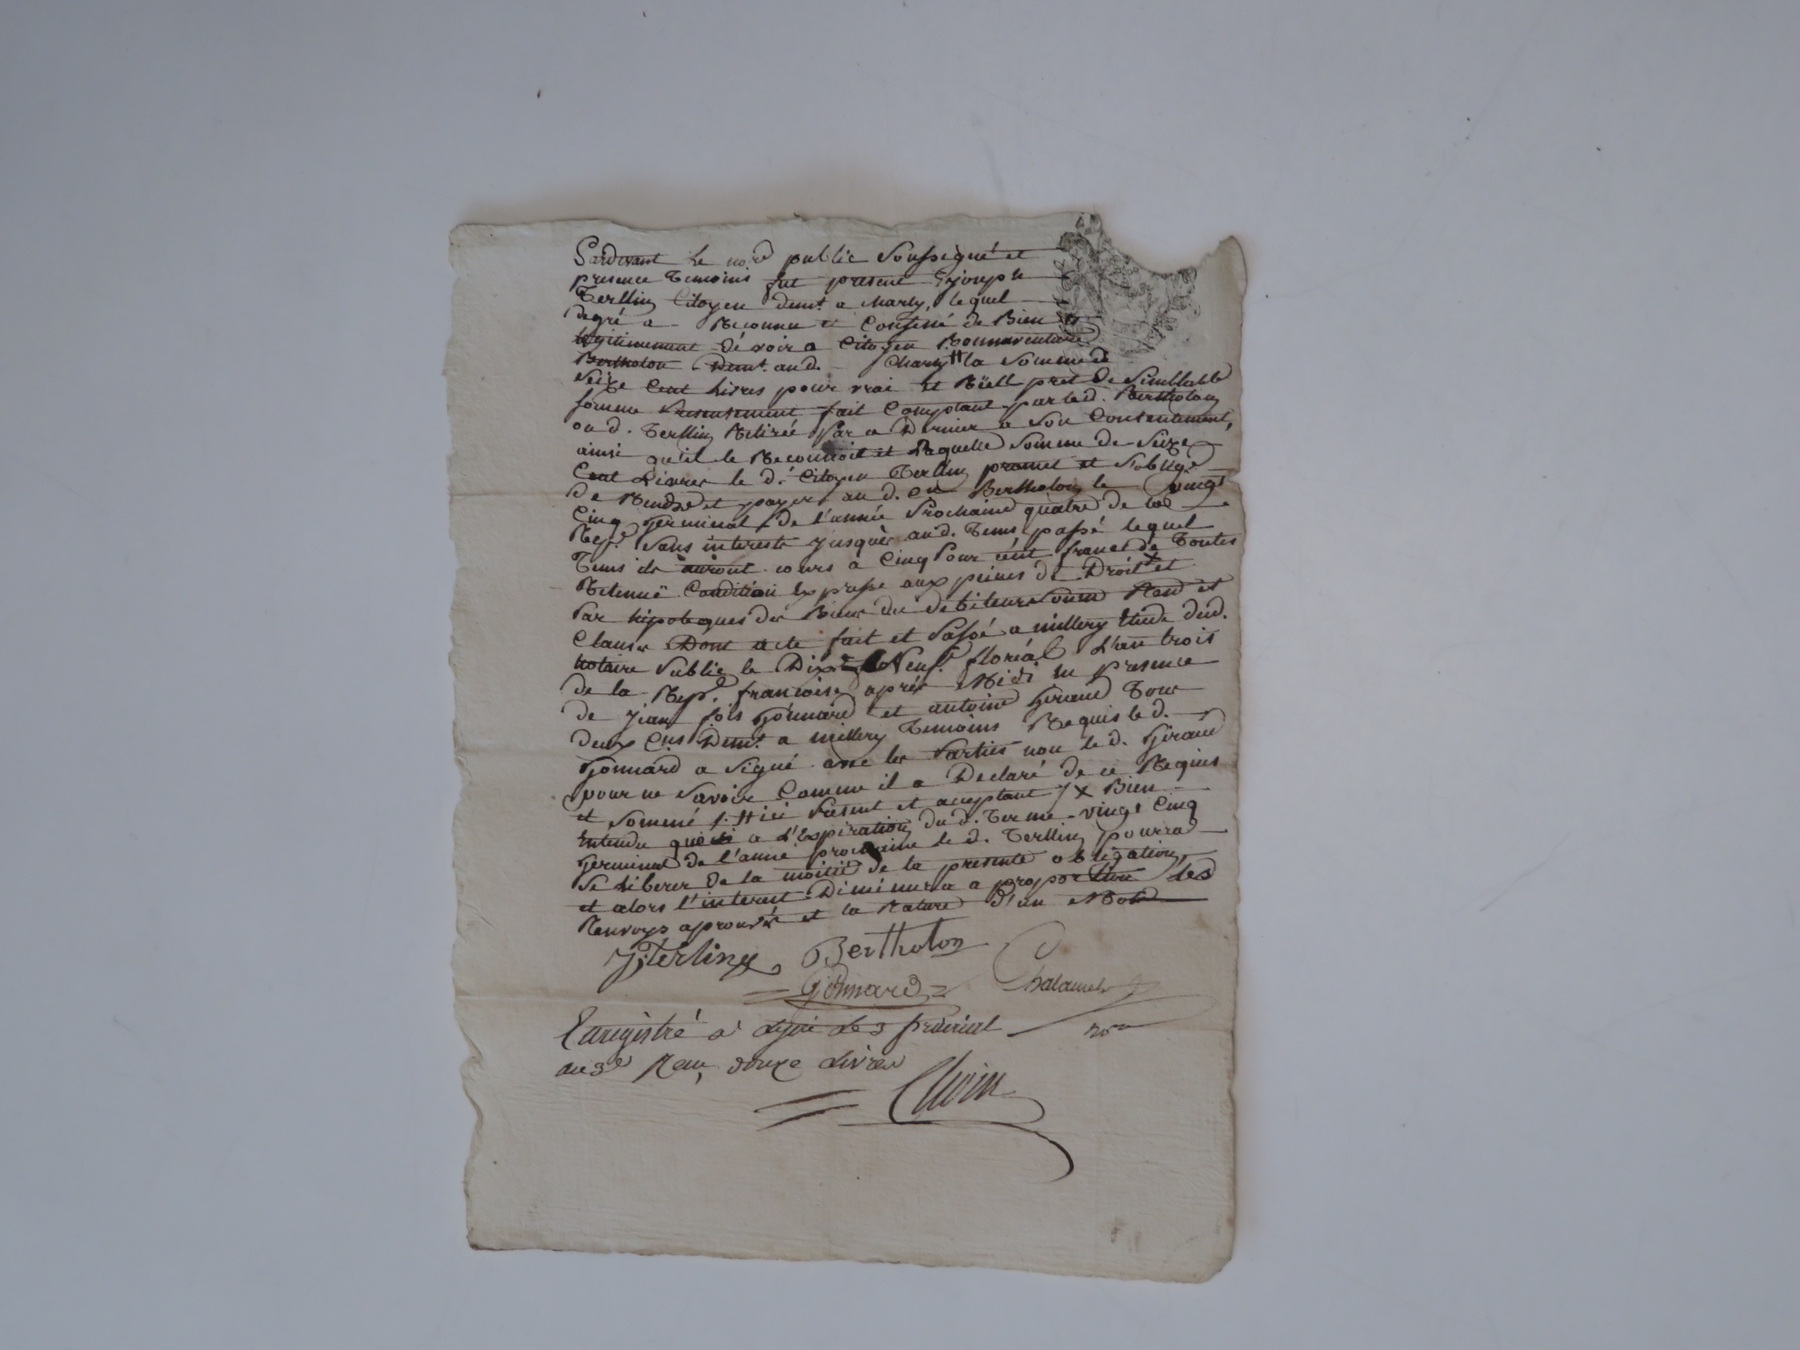 Pardevant le no.re public soussigné et
presence temoins fut present Sr joseph
Terlling Citoyen demt a Charly, lequel
degré a Reconnu et Confessé de Bien et
legitimement dévoir a Citoyen Bonnaventure
Bertholon Demt. aud. Charly # la Somme de
Seize Cent Livres pour vrai et Réell pret de Semblable
somme presentement fait Comptant par led. Bertholon
aud. Terlling Retirée par ce Dernier a son Contentement,
ainsi qu'il le Reconnoit et Laquelle Somme de Seize
Cent Livres le d. Citoyen Terlling promet et s'oblige
de Rendre et payer au d. Cit Bertholon le vingt
Cinq germinal de l'année Prochaine quatre de la
Rep.e Sans interests jusques aud. Tems, passé lequel
Tems ils auront cours a Cinq Pour cent franct de Toutes
Retenuë Condition Expresse aux peines de Droit x et
Par hipoteques des Biens du debiteur
Clauses Dont acte fait et Passé a millery Etude dud.
notaire Public le Dix Neuf floréal L'an trois
de la Rep.e francoise après Midi en Presence
de jean fois Gonnard et antoine Giraud Tous
deux Cns Demt. a millery Temoins Requis le d.
Gonnard a Signé avec les Parties non le d. Giraud
pour ne Savoir Comme il a Declaré de ce Requis
et Sommé /. # ici Present et acceptant / x Bien
Entendu qu'a L'Expiration du d. Terme vingt Cinq
Germinal de l'année prochaine le d. Terlling pourra
Se Liberer de la moitié de la presente obligation,
et alors l'interest Diminuera a proportion les
Renvoys aprouvés et la Rature d'un Mot
J. Terling Bertholon
Gonnard Chalamel
nore
Enregistré a le 3 prairial
an 3e Reçu douze Livres